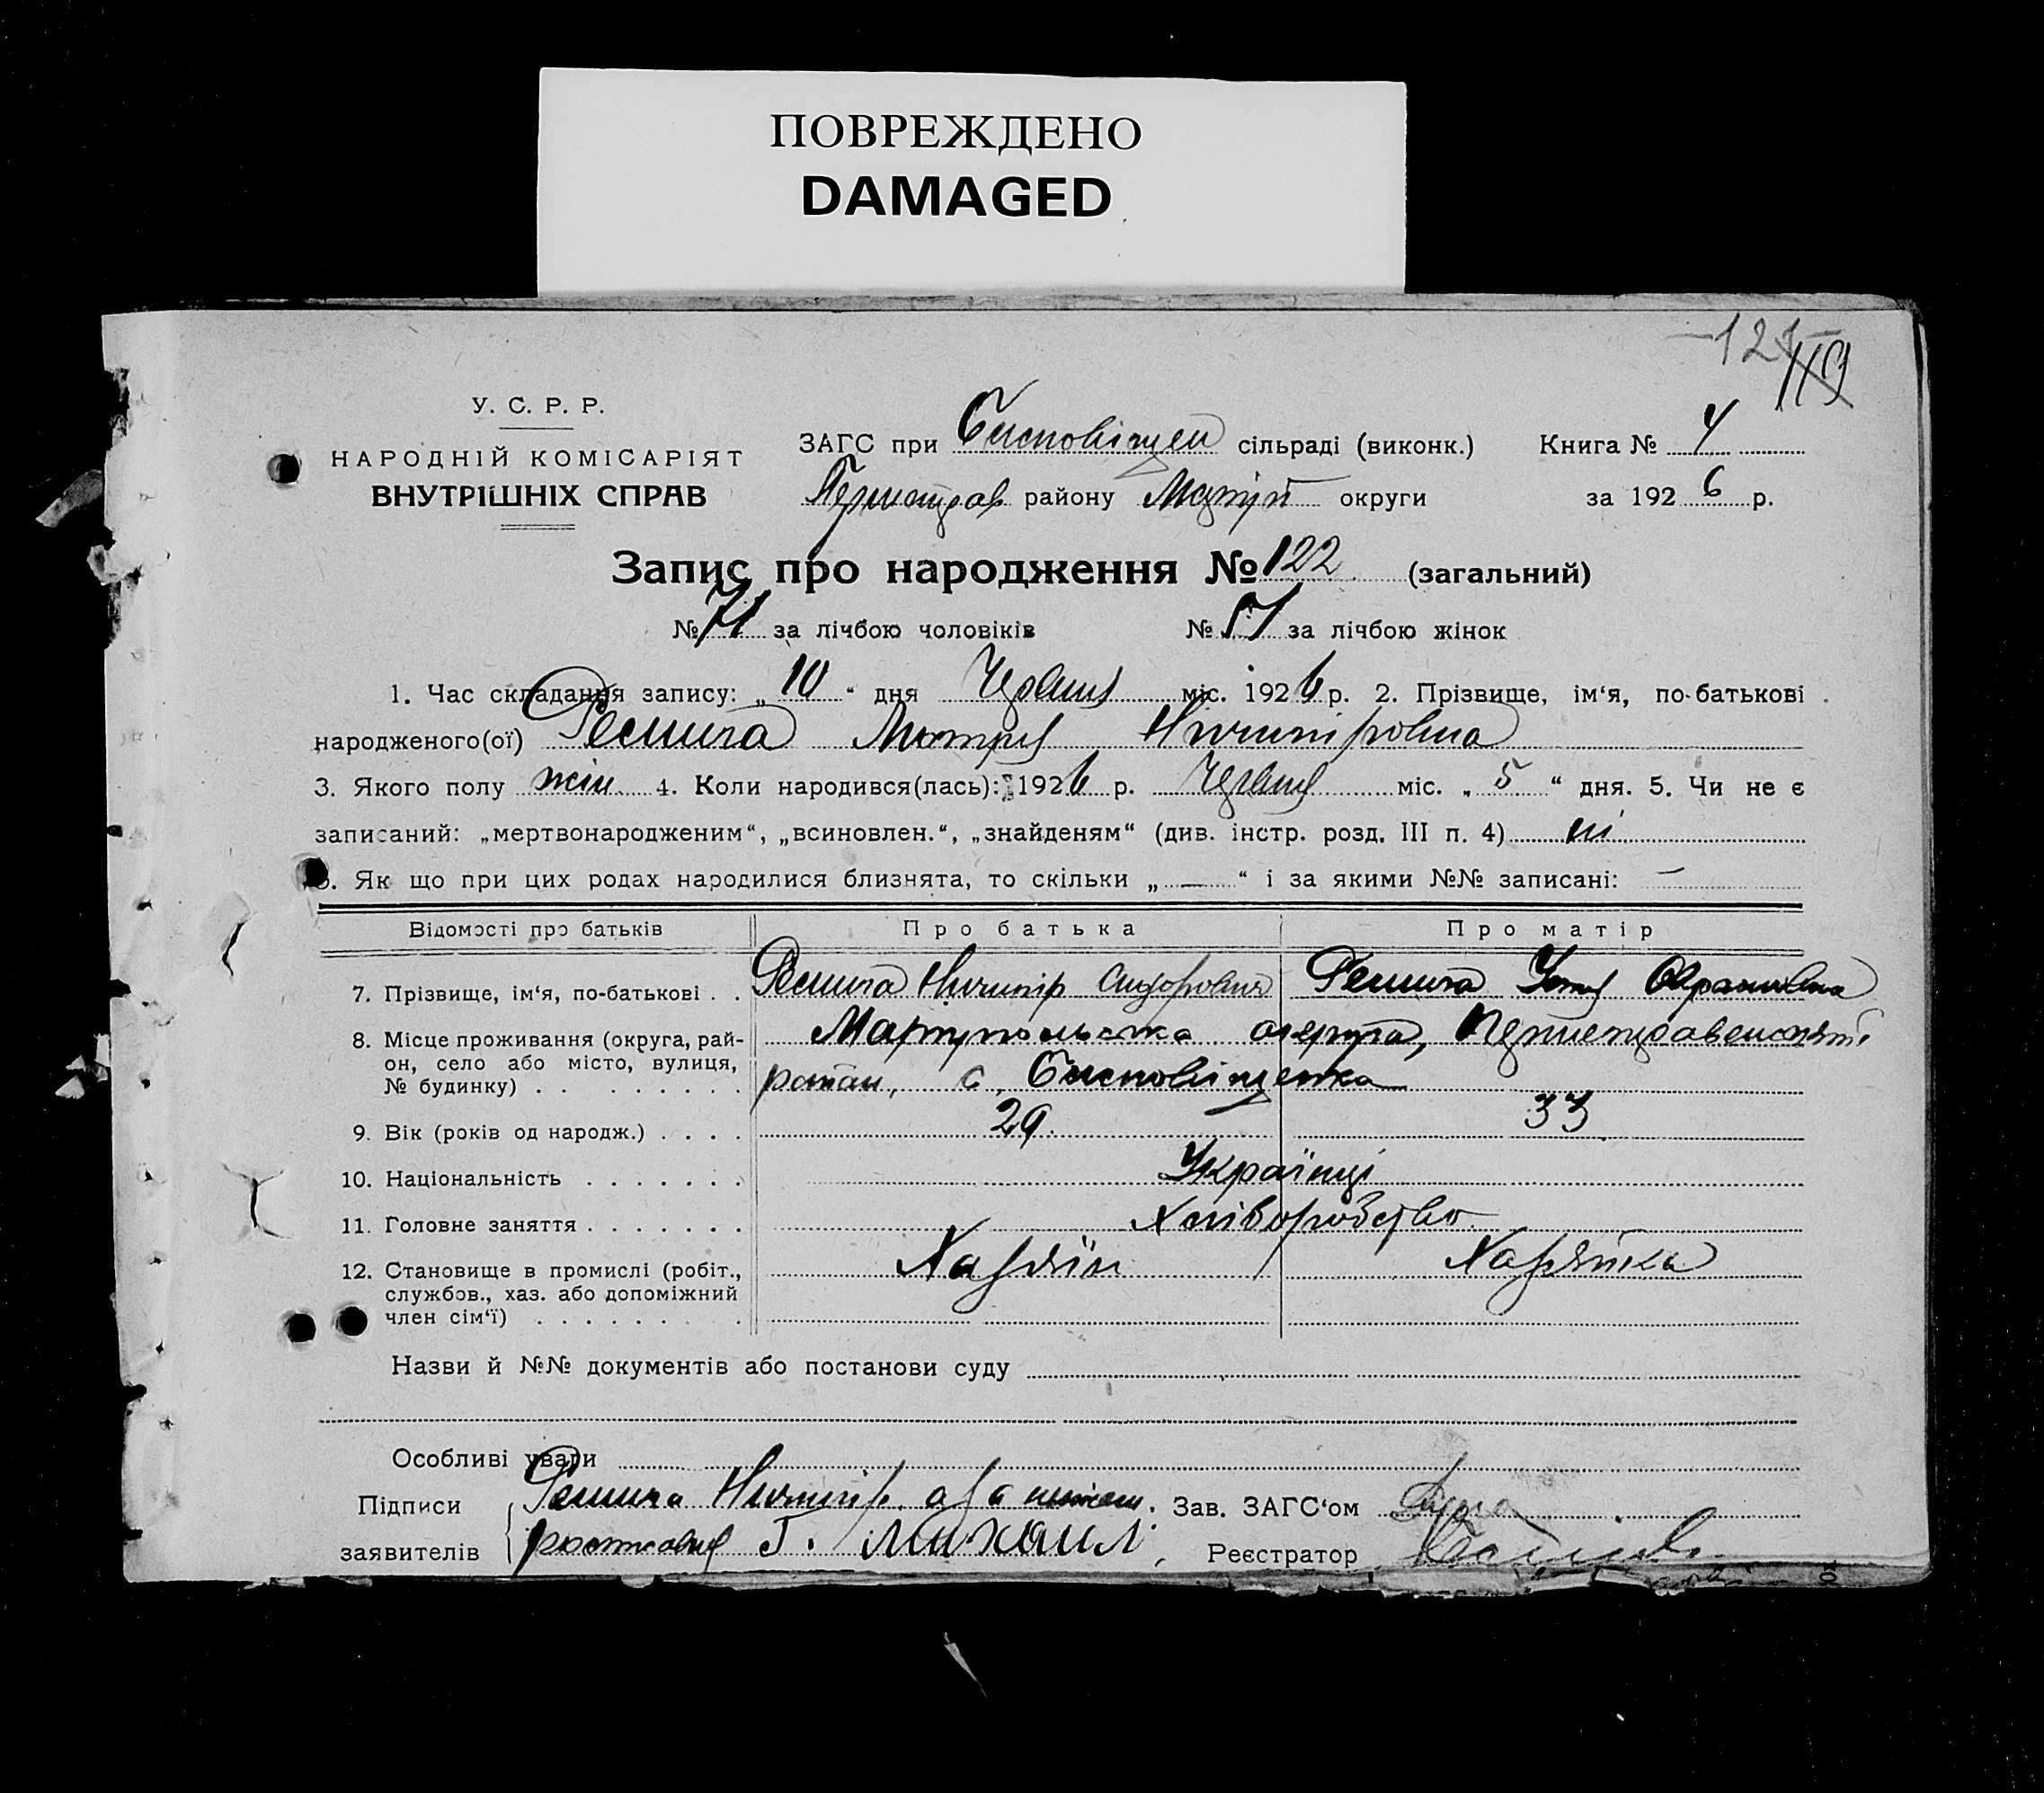 ПОВРЕЖДЕНО
DAMAGED
У. С. Р. Р.
НАРОДНІЙ КОМІСАРІЯТ
ВНУТРІШНІХ СПРАВ
ЗАГС при сільраді (виконк.) Книга № 4
району Маріуп округи за 1926 р.
Запис про народження № 122 (загальний)
№ 71 за лічбою чоловіків № 51 за лічбою жінок
1. Час складання запису: „10“ дня Червня міс. 1926 р. 2. Прізвище, ім‘я, по-батькові
народженого(ої) Мотря Ничипіровна
3. Якого полу жін. 4. Коли народився(лась): 1926 р. Червня міс. „5“ дня. 5. Чи не є
записаний: „мертвонародженим“, „всиновлен.“, „знайденям“ (див. інстр. розд. III п. 4) ні
6. Як що при цих родах народилися близнята, то скільки „—“ і за якими №№ записані: —
Відомості про батьків Про батька Про матір
7. Прізвище, ім‘я, по-батькові . . Ничипір Сидорович
8. Місце проживання (округа, рай-
он, село або місто, вулиця,
№ будинку) . . . . . . . . Маріупольська округа,
район, с.
9. Вік (років од народж.) . . . . 29 33
10. Національність . . . . . . . Українці
11. Головне заняття . . . . . . . Хліборобство
12. Становище в промислі (робіт.,
службов., хаз. або допоміжний
член сім‘ї) . . . . . . . . . Хазяїн Хазяйка
Назви й №№ документів або постанови суду
Особливі уваги
Підписи Ничипір. Зав. ЗАГС‘ом
заявителів Г. Михаил Реєстратор